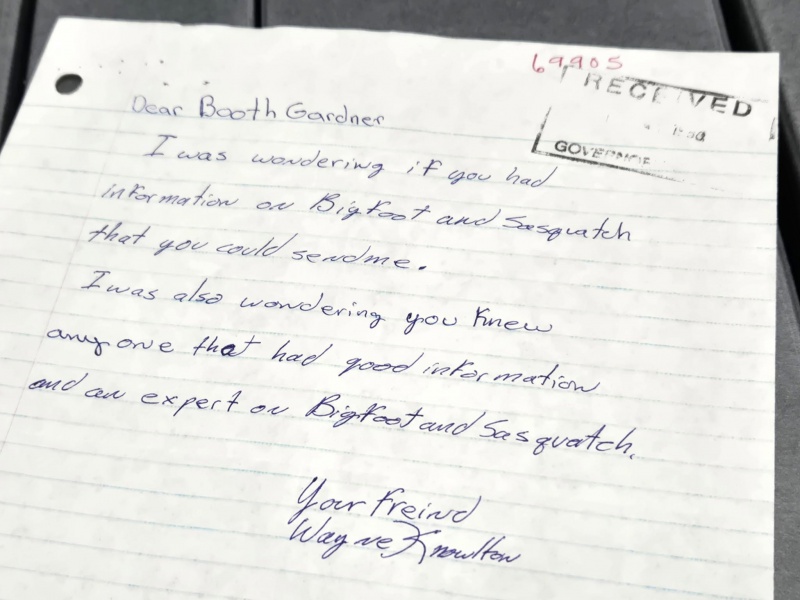 69905
RECEIVED
GOVERNOR
Dear Booth Gardner
I was wondering if you had
information on Bigfoot and Sasquatch
that you could sendme.
I was also wondering you knew
anyone that had good information
and an expert on Bigfoot and Sasquatch.
Your Freind
Wayne Knowlton